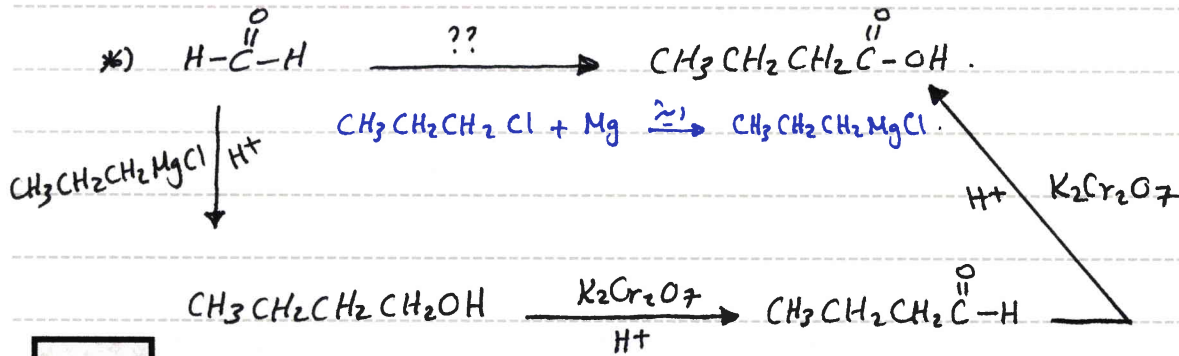 *) H-C(=O)-H ?? CH3CH2CH2C(=O)-OH.
CH3CH2CH2Cl + Mg إيثر CH3CH2CH2MgCl.
CH3CH2CH2MgCl H+
H+ K2Cr2O7
CH3CH2CH2CH2OH K2Cr2O7 H+ CH3CH2CH2C(=O)-H